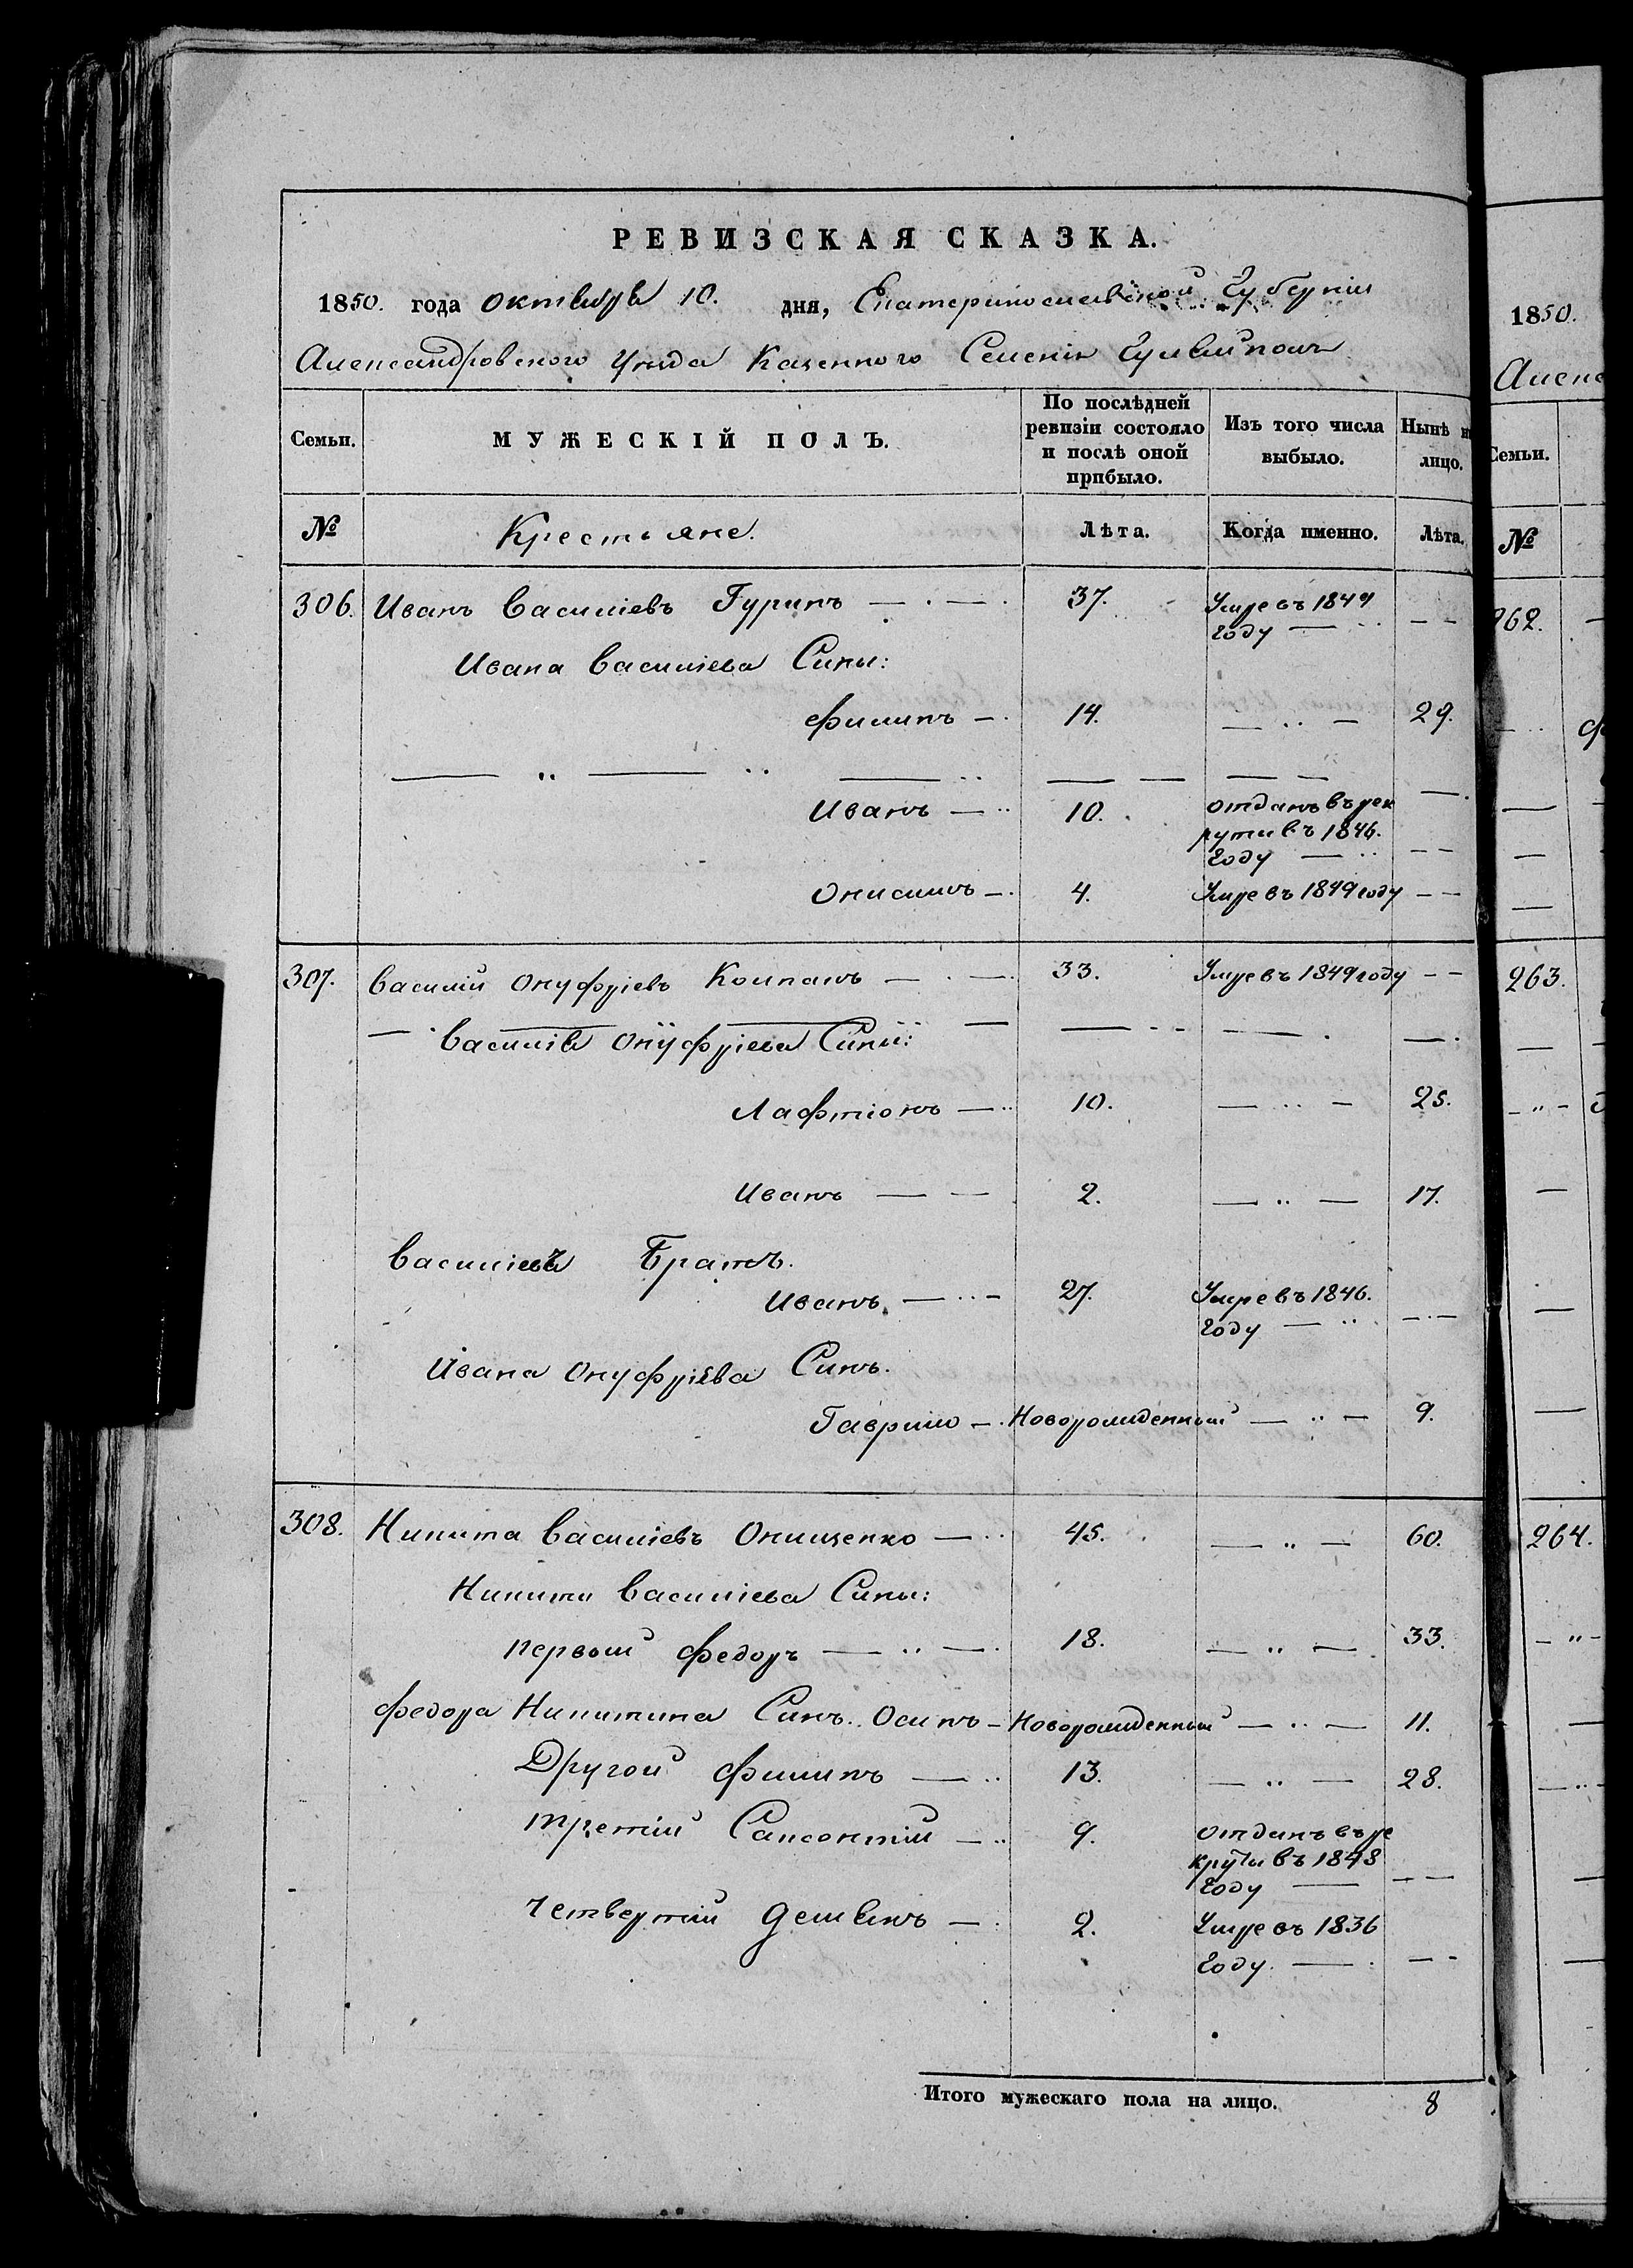 РЕВИЗСКАЯ СКАЗКА.
1850. года октября 10. дня, Екатеринославской Губернии
Александровского Уезда Казенного Селения Гуляйполя
Семьи. МУЖЕСКІЙ ПОЛЪ. По послѣдней ревизіи состояло и послѣ оной прибыло. Изъ того числа выбыло. Нынѣ на лицо.
№ Крестьяне. Лѣта. Когда именно. Лѣта.
306. Иванъ Василіевъ Гуринъ 37. Умре въ 1849 году
Ивана Василіева Сины:
Филипъ 14. 29.
Иванъ 10. отданъ въ рекрути въ 1846. году
Онисимъ 4. Умре въ 1849 году
307. Василий Онуфріевъ Компанъ 33. Умре въ 1849 году
Василія Онуфріева Сини:
Лафтіонъ 10. 25.
Иванъ 2. 17.
Василіевъ Братъ.
Иванъ 27. Умре въ 1846. году
Ивана Онуфріева Синъ.
Гаврило Новорожденный 9.
308. Никита Василіевъ Онищенко 45. 60.
Никити Василіева Сины:
первый Федоръ 18. 33.
Федора Никитина Синъ. Осипъ Новорожденный 11.
Другой Филипъ 13. 28.
третій Сапсонтій 9. отданъ въ рекрути въ 1848 году
Четвертий Демянъ 2. Умре въ 1836 году
Итого мужескаго пола на лицо. 8
1850.
Семьи.
№
262.
263.
264.